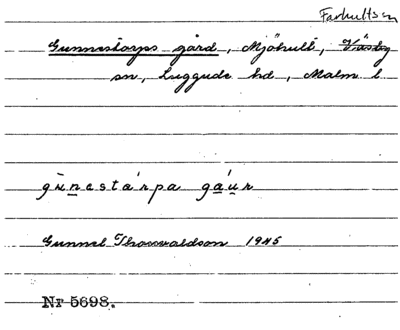 Farhults sn
Gunnestorps gård, Mjöhult, Väsby
sn, Luggude hd, Malm l
gùnastárpa gáur
Gunnel Thorvaldson 1945
Nr 5698.